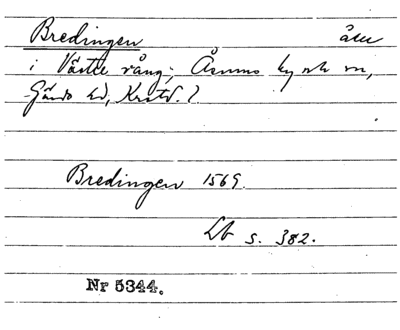 Bredingen åker
i Västra vång; Åsums by och sn,
Gärds hd, Krstd. l.
Bredingen 1569.
Lb s. 382.
Nr 5344.